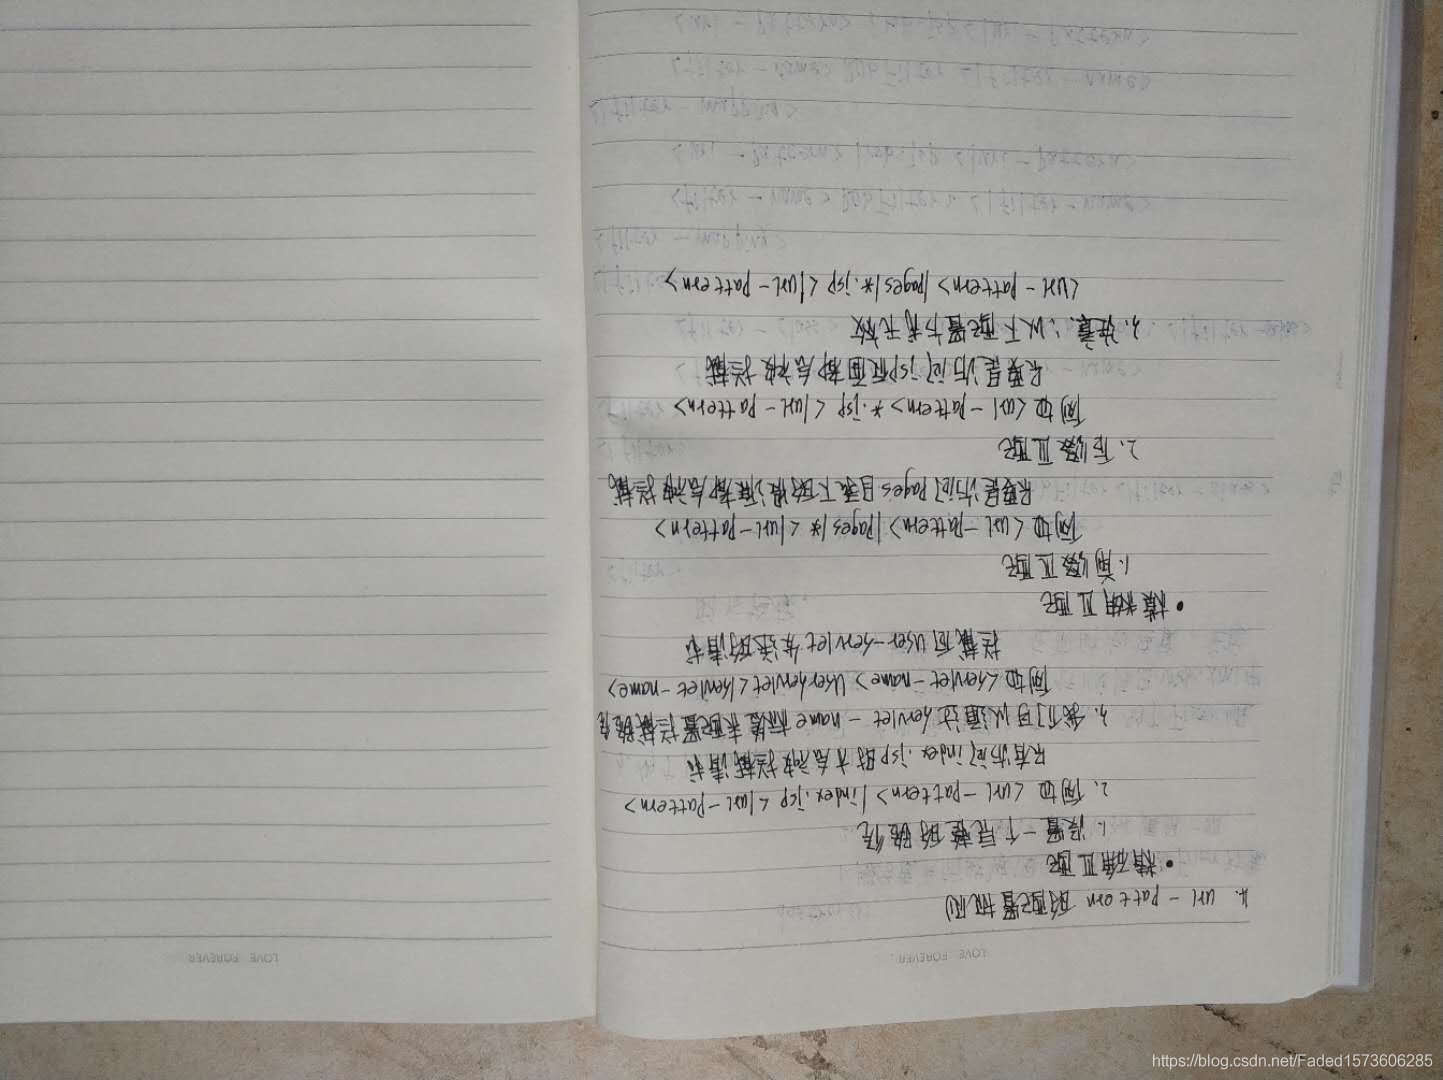 LOVE FOREVER.
4. url-pattern 的配置规则
• 精确匹配
1. 设置一个完整的路径
2. 例如 <url-pattern>/index.jsp</url-pattern>
只有访问index.jsp时才会被拦截请求
3. 我们可以通过servlet-name标签来配置拦截路径
例如<servlet-name>UserServlet</servlet-name>
拦截向User-Servlet发送的请求
• 模糊匹配
1. 前缀匹配
例如<url-pattern>/pages/*</url-pattern>
只要是访问pages目录下的资源都会被拦截
2. 后缀匹配
例如<url-pattern>*.jsp</url-pattern>
只要是访问jsp页面都会被拦截
3. 注意：以下配置无效
<url-pattern>/pages/*.jsp</url-pattern>
LOVE FOREVER
https://blog.csdn.net/Faded1573606285